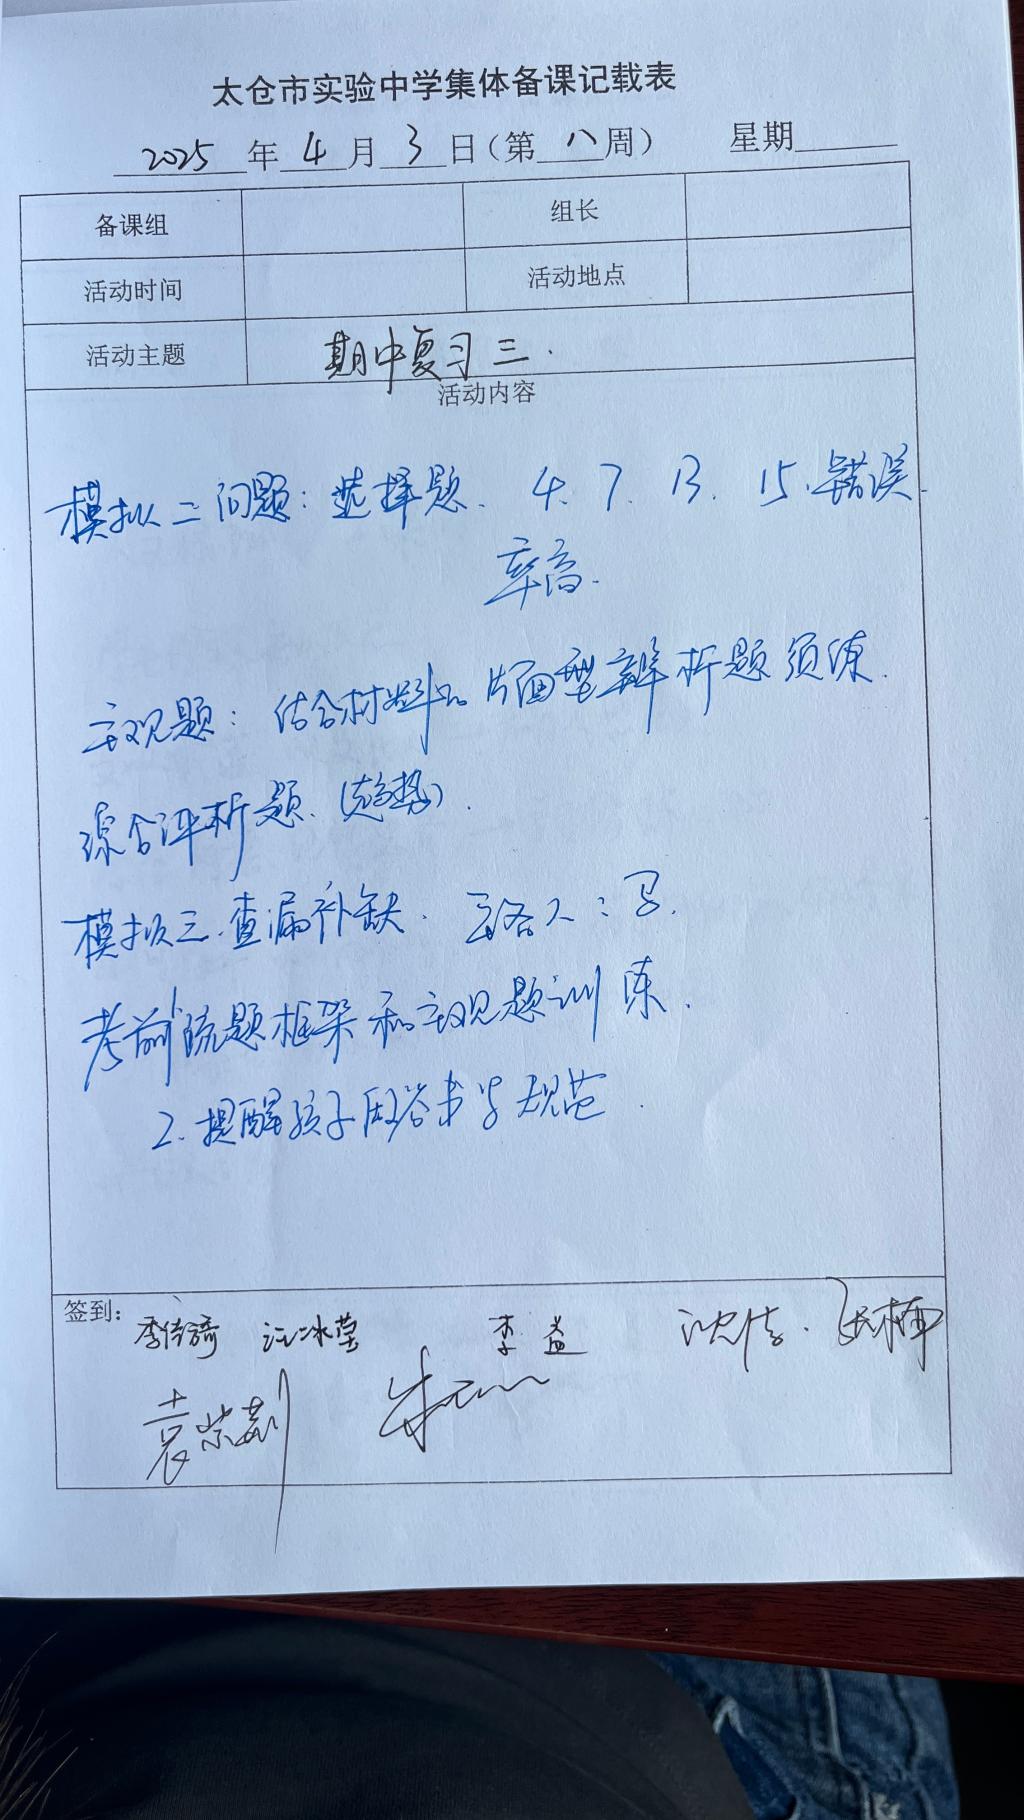 太仓市实验中学集体备课记载表
2025年4月3日（第八周） 星期
备课组 组长
活动时间 活动地点
活动主题 期中复习三.
活动内容
模拟二问题：选择题. 4. 7. 13. 15. 错误
率高.
主观题：结合材料 片面型辨析题须练.
综合评析题.（趋势）.
模拟三.查漏补缺.
考前 题框架和主观题训练.
2. 提醒孩子 答书写规范.
签到：
李倩 汪冰莹 李益 沈 张楠
袁紫 朱